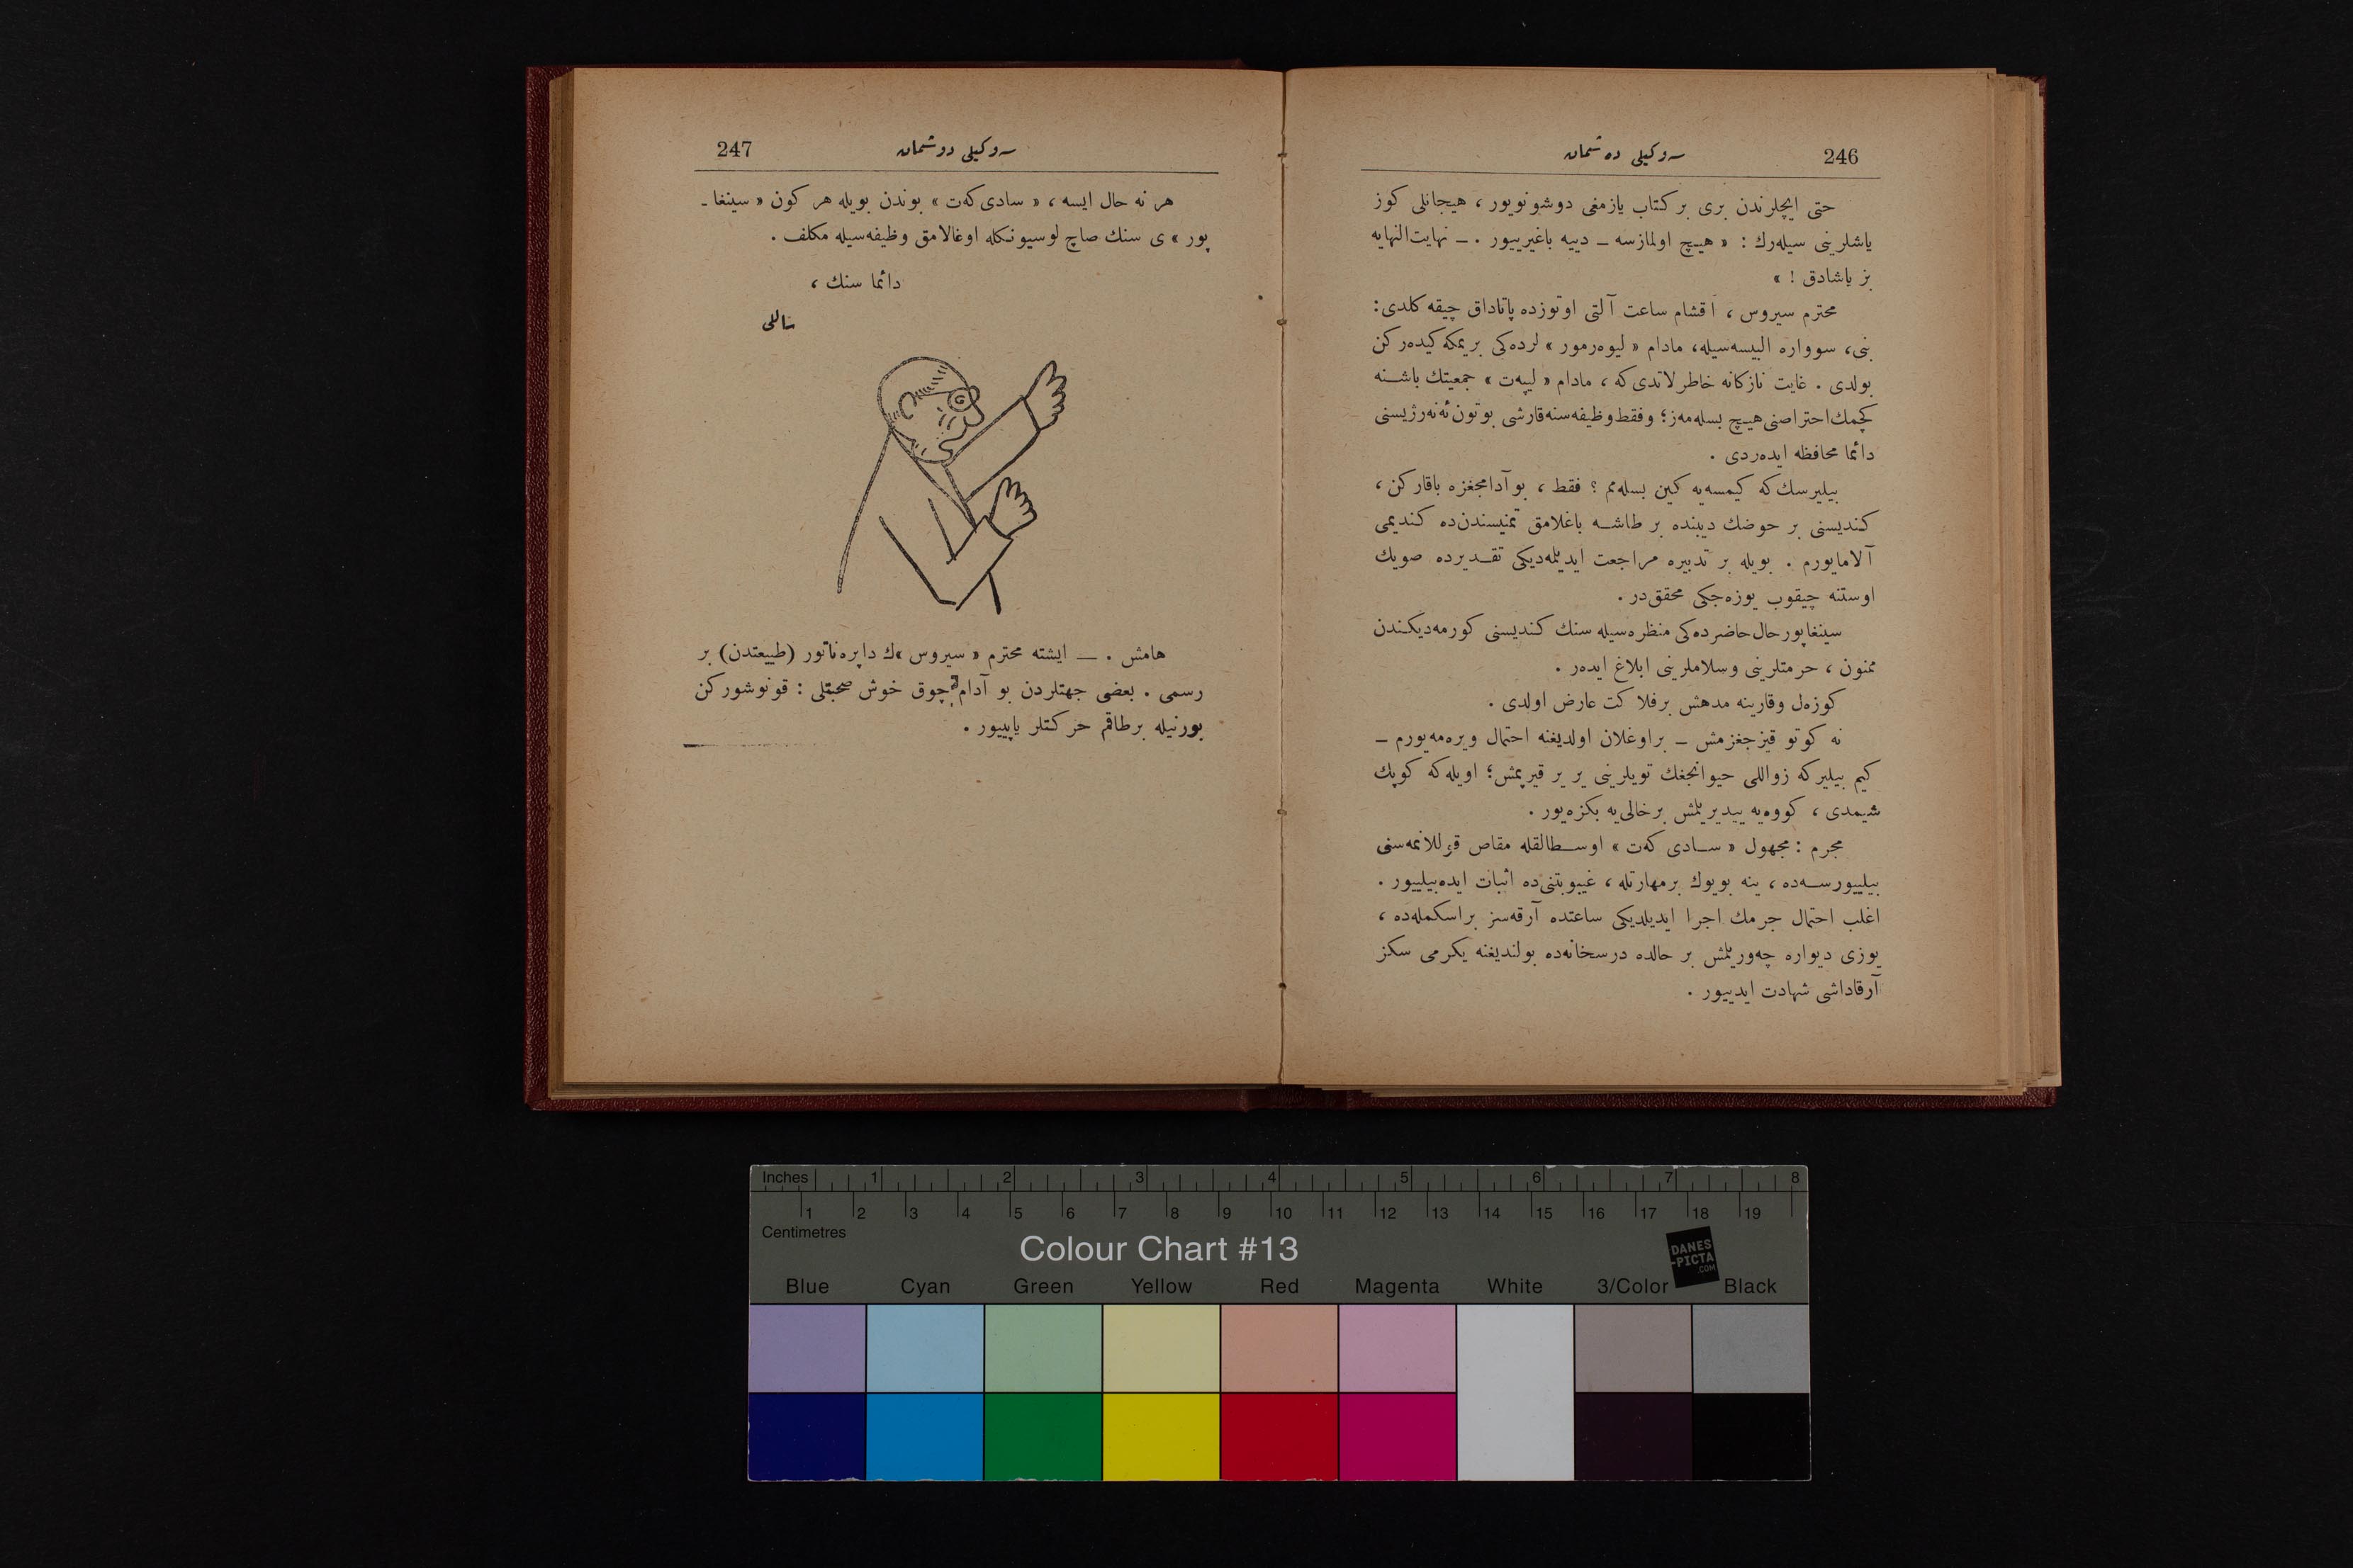 246
سوكیلی دوشمان
حتی ایچلرندن بری بر كتاب یازمغی دوشونویور ، هیجانلی كوز
یاشلرینی سیله‌رك : « هیـچ اولمازسه ـ دییه باغیرییور . ـ نهایت‌النهایه
بز یاشادق ! »
محترم سیروس ، آقشام ساعت آلتی اوتوزده پاتاداق چیقه كلدی :
بنی، سوواره البیسه‌سیله، مادام « لیوه‌رمور » لرده‌كی بر یمكه كیده‌ركن
بولدی . غایت نازكانه خاطرلاتدی‌كه ، مادام « لیپه‌ت » جمعیتك باشـنه
كچمك احتراصنی هیـچ بسله‌مه‌ز؛ وفقط وظیفه‌سنه قارشی بوتون ئه‌نه‌رژیسنی
دائما محافظه ایده‌ردی .
بیلیرسك‌كه كیمسه‌یه كین بسله‌مم ؟ فقط ، بو آدامجغزه باقاركن ،
كندیسنی بر حوضك دیبنده بر طاشـه باغلامق تمنیسندن‌ده كندیمی
آلامایورم . بویله بر تدبیره مراجعت ایدیلمه‌دیكی تقـدیرده صویك
اوستنه چیقوب یوزه‌جكی محقق‌در .
سینغاپور حال حاضرده‌كی منظره‌سیله سنك كندیسنی كورمه‌دیكندن
ممنون ، حرمتلرینی وسلاملرینی ابلاغ ایده‌ر .
كوزه‌ل وقارینه مدهش برفلاكت عارض اولدی .
نه كوتو قیزجغزمش ـ براوغلان اولدیغنه احتمال ویره‌مه‌یورم ـ
كیم بیلیركه زواللی حیوانجغك تویلرینی یر یر قیرپمش؛ اویله‌كه كوپك
شیمدی ، كووه‌یه ییدیریلمش برخالی‌یه بكزه‌یور .
مجرم : مجهول « سـادی كه‌ت » اوسـطالقله مقاص قوللانمه‌سنی
بیلییورسـه‌ده ، ینه بویوك برمهارتله ، غیبوبتنی‌ده اثبات ایده‌بیلییور .
اغلب احتمال جرمك اجرا ایدیلدیكی ساعتده آرقه‌سز براسكمله‌ده ،
یوزی دیواره چه‌وریلمش بر حالده درسخانه‌ده بولندیغنه یكرمی سكز
آرقاداشی شهادت ایدییور .
247
سوكیلی دوشمان
هر نه حال ایسه ، « سادی‌كه‌ت » بوندن بویله هر كون « سینغا ـ
پور » ی سنك صاچ لوسیونكله اوغالامق وظیفه‌سیله مكلف .
دائما سنك ،
ساللی
هامش . ــ ایشته محترم « سیروس »ك داپره‌ناتور (طبیعتدن) بر
رسمی . بعضی جهتلردن بو آدام چوق خوش صحبتلی : قونوشوركن
بورنیله برطاقم حركتلر یاپییور .
Inches 1 2 3 4 5 6 7 8
1 2 3 4 5 6 7 8 9 10 11 12 13 14 15 16 17 18 19
Centimetres
Colour Chart #13
DANES
-PICTA
.COM
Blue Cyan Green Yellow Red Magenta White 3/Color Black